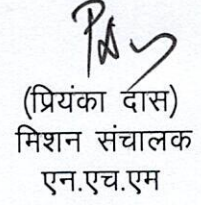 (प्रियंका दास)
मिशन संचालक
एन.एच.एम